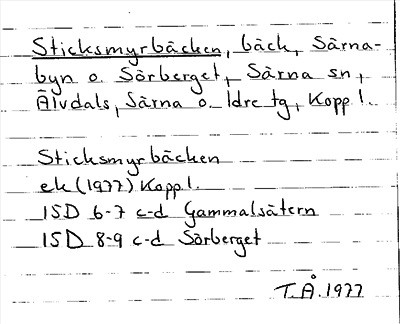 Sticksmyrbäcken, bäck, Särna-
byn o. Sörberget, Särna sn,
Älvdals, Särna o. Idre tg, Kopp l.
Sticksmyrbäcken
ek (1977) Kopp l.
15D 6-7 c-d Gammalsätern
15D 8-9 c-d Sörberget
T.Å. 1977